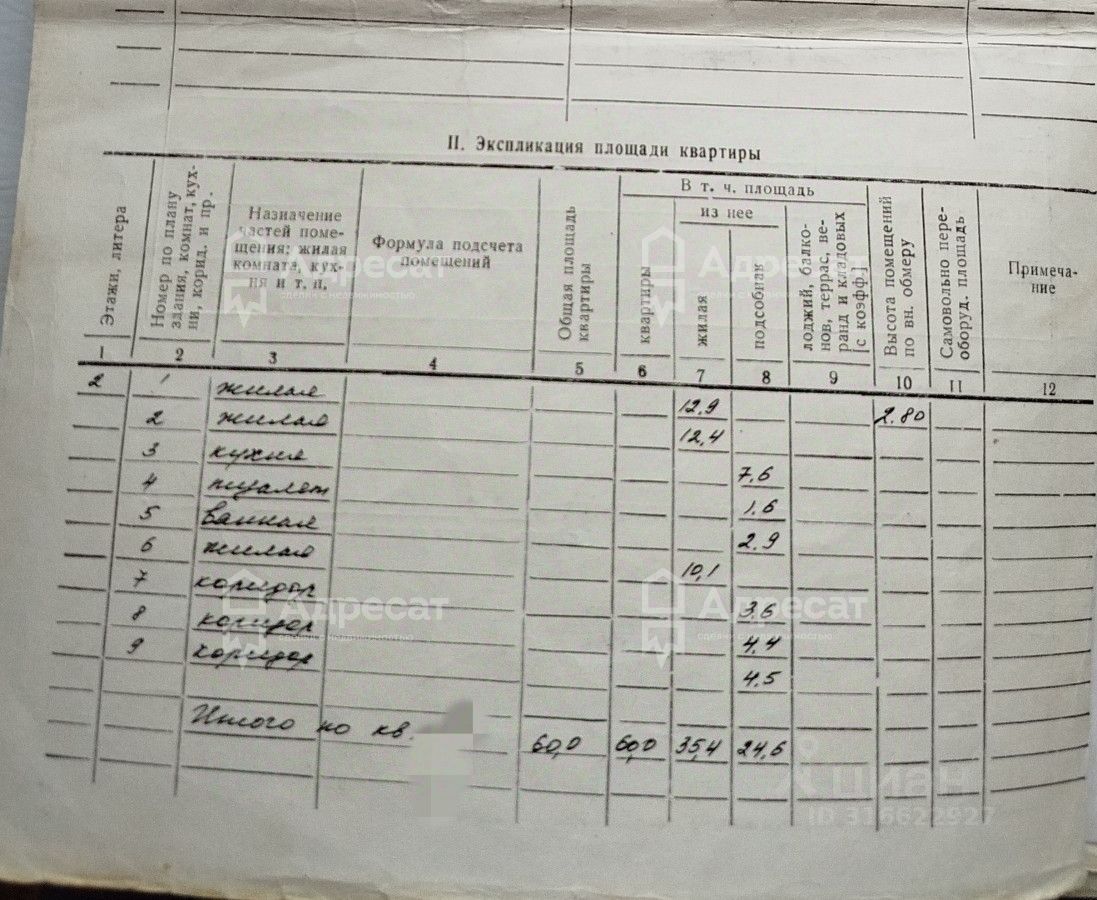 II. Экспликация площади квартиры
Этажи, литера
Номер по плану здания, комнат, кухни, корид. и пр.
Назначение частей помещения: жилая комната, кухня и т. п.
Формула подсчета помещений
Общая площадь квартиры
В т. ч. площадь
из нее
квартиры
жилая
подсобная
лоджий, балконов, террас, веранд и кладовых [с коэфф.]
Высота помещений по вн. обмеру
Самовольно переоборуд. площадь
Примечание
1 2 3 4 5 6 7 8 9 10 11 12
2 1 жилая 12,9 2.80
2 жилая 12,4
3 кухня 7,6
4 туалет 1,6
5 ванная 2,9
6 жилая 10,1
7 коридор 3,6
8 коридор 4,4
9 коридор 4,5
Итого по кв. 60,0 60,0 35,4 24,6
Адресат
сделки с недвижимостью
Адресат
сделки с недвижимостью
Адресат
сделки с недвижимостью
Адресат
сделки с недвижимостью
циан
ID 316622927